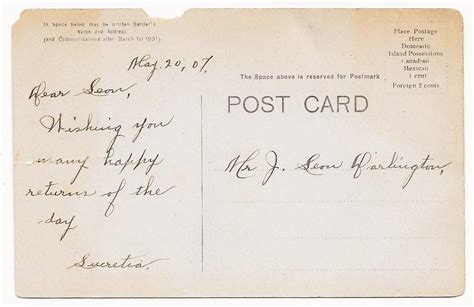 In Space below may be written Sender's
Name and Address
(and Communications after March 1st 1907)
Place Postage
Here
Domestic
Island Possessions
Canadian
Mexican
1 cent
Foreign 2 cents
May. 20, 07.
The Space above is reserved for Postmark
POST CARD
Dear Leon,
Wishing you
many happy
returns of the
day
Lucretia.
Mr J. Leon Darlington,